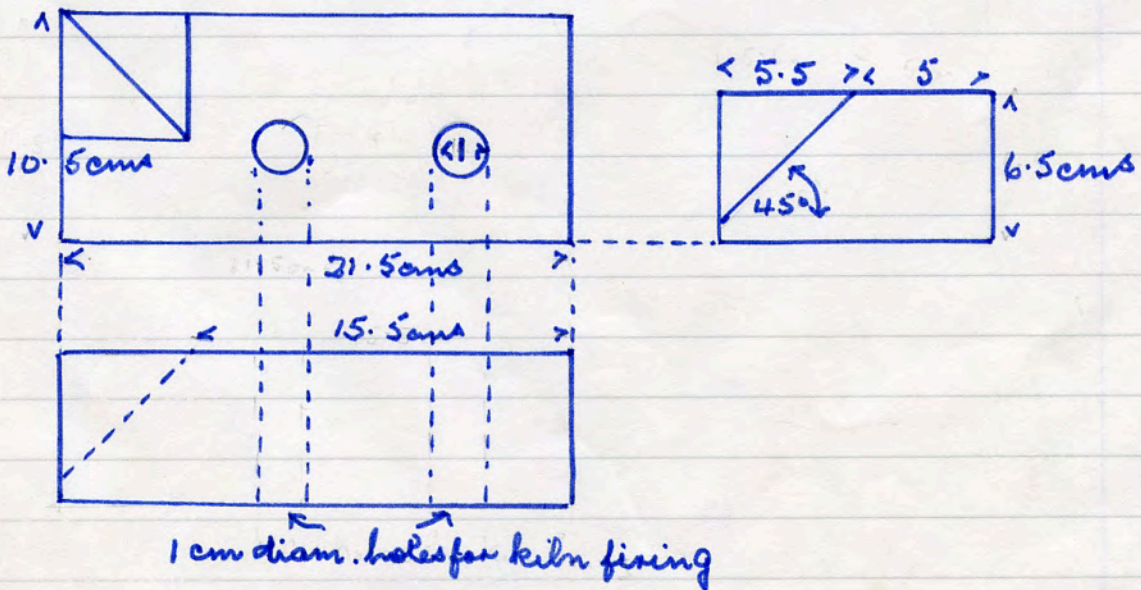 < 5.5 > < 5 >
10.5cms
<1>
6.5cms
45°
21.5cms
15.5cms
1 cm diam. holes for kiln firing